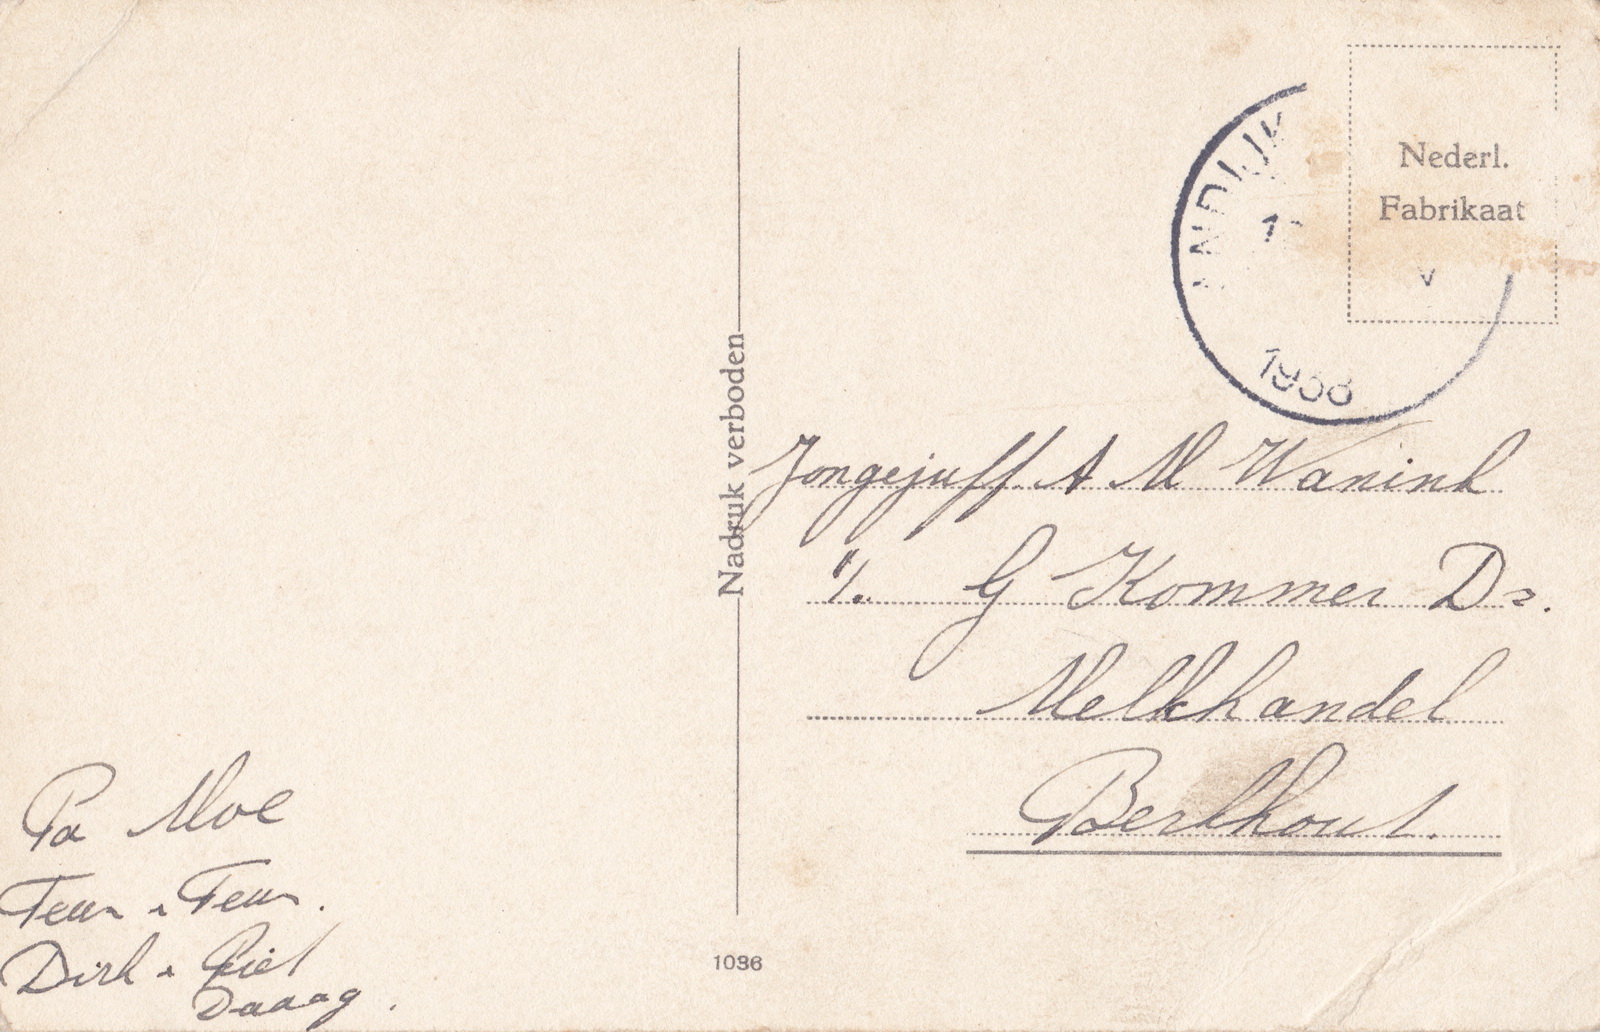 NDIJK
1
V
1938
Nederl.
Fabrikaat
Nadruk verboden
Jongejuff. A M Wanink
G Kommer Dz.
Melkhandel
Berkhout.
Pa Moe
Teun Teun.
Dirk Piet
Daaag.
1036